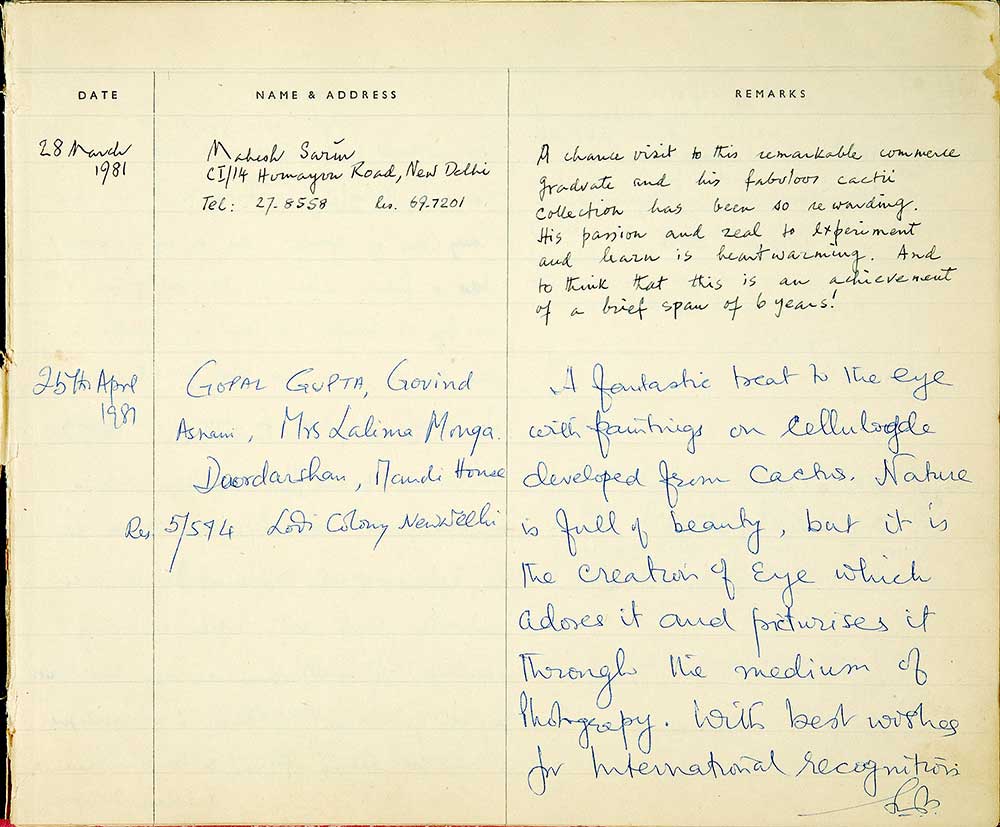 DATE
NAME & ADDRESS
REMARKS
28 March
1981
Mahesh Sarin
CI/14 Humayun Road, New Delhi
Tel: 27.8558 Res. 69.7201
A chance visit to this remarkable commerce
graduate and his fabulous cactii
collection has been so rewarding.
His passion and zeal to experiment
and learn is heartwarming. And
to think that this is an achievement
of a brief span of 6 years!
25th April
1981
GOPAL GUPTA, Govind
Asnani, Mrs Lalima Monga.
Doordarshan, Mandi House
Res. 5/594 Lodi Colony New Delhi
A fantastic treat to the eye
with paintings on
developed from Cactus. Nature
is full of beauty, but it is
the creation of Eye which
adores it and picturises it
through the medium of
Photograpy. With best wishes
for International recognition